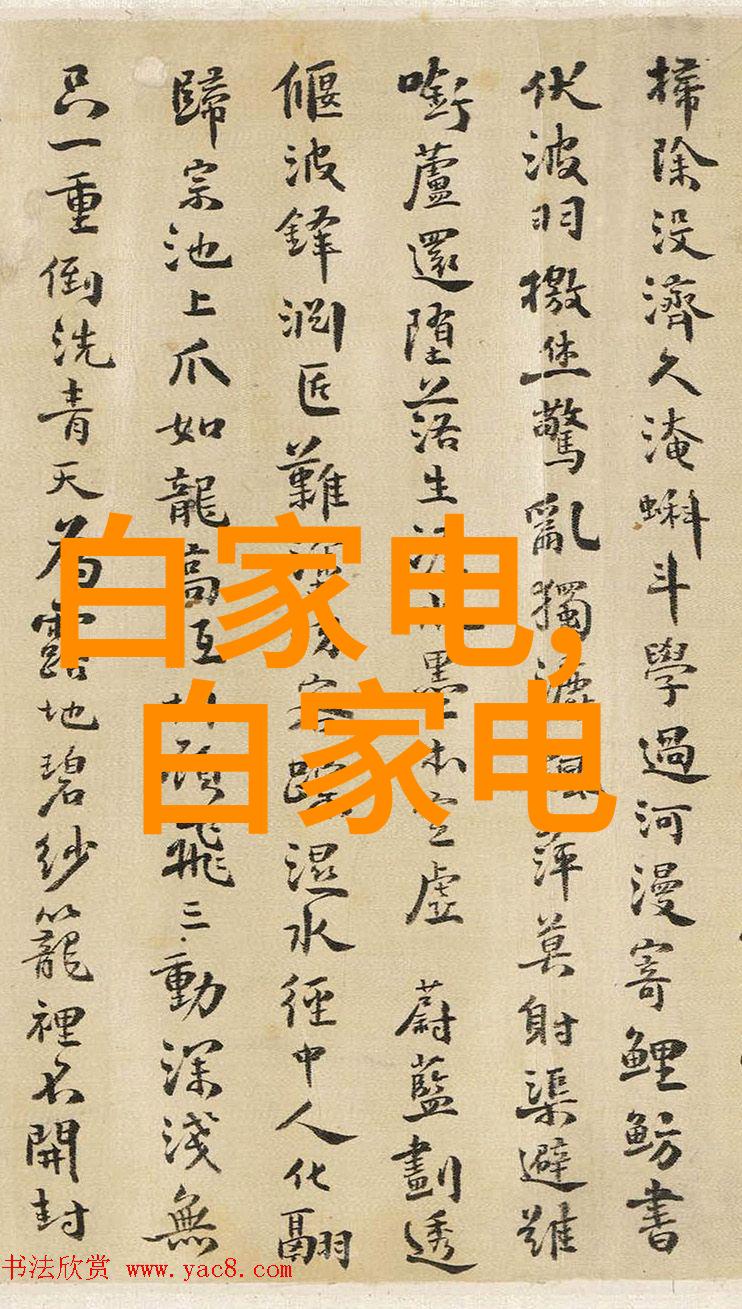 掃除没濟久淹蝌斗學過河漫寄鯉魴書
伏波羽檄驚亂獨風萍莫射渠避
啣蘆還墮落生水墨本空虛 蔚藍劃透
偃波鋒澗匠難客蹤濕水徑中人化翩
歸宗池上爪如龍高飛三動深淺無
只一重倒洗青天為露地碧紗籠裡不開封
白家电,
白家电
书法欣赏 www.yac8.com